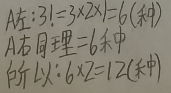 A左:3!=3×2×1=6(种)
A右同理=6种
所以:6×2=12(种)